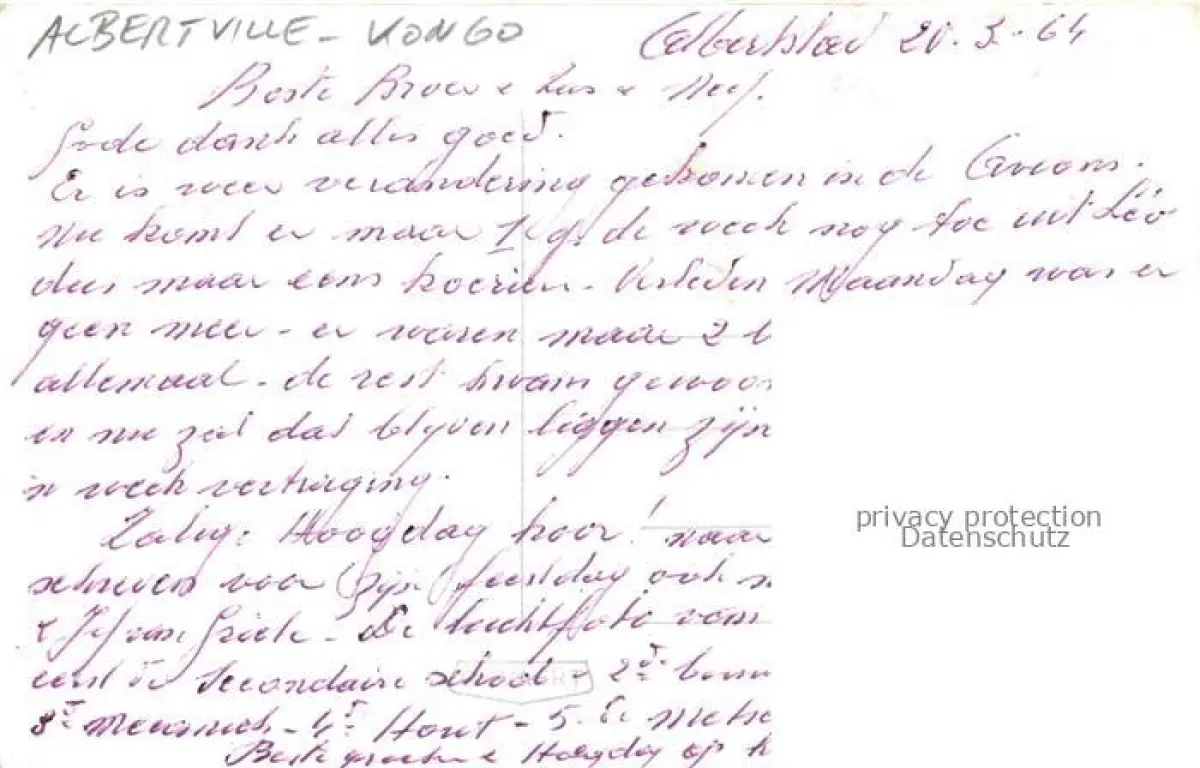 ALBERTVILLE - KONGO
Albertstad 21.3.-64
Beste Broer & Zus & Neef.
Gode dank alles goed.
Er is weer verandering gekomen in de
Nu komt er maar 1 de week nog toe uit Léo
dus maar eens koerier. Verleden Maandag was er
geen meer - er waren maar 2
allemaal - de rest kwam gewoon
en nu zal dat blijven liggen zijn
n week vertraging.
Zalig. Hoogdag hoor! naar
schreven voor zijn feestdag ook
& Jef van - De luchtfoto van
eerst de Secondaire school - 2de
3de - 4de Hout - 5. de
Beste groeten & Hoogdag op
privacy protection
Datenschutz